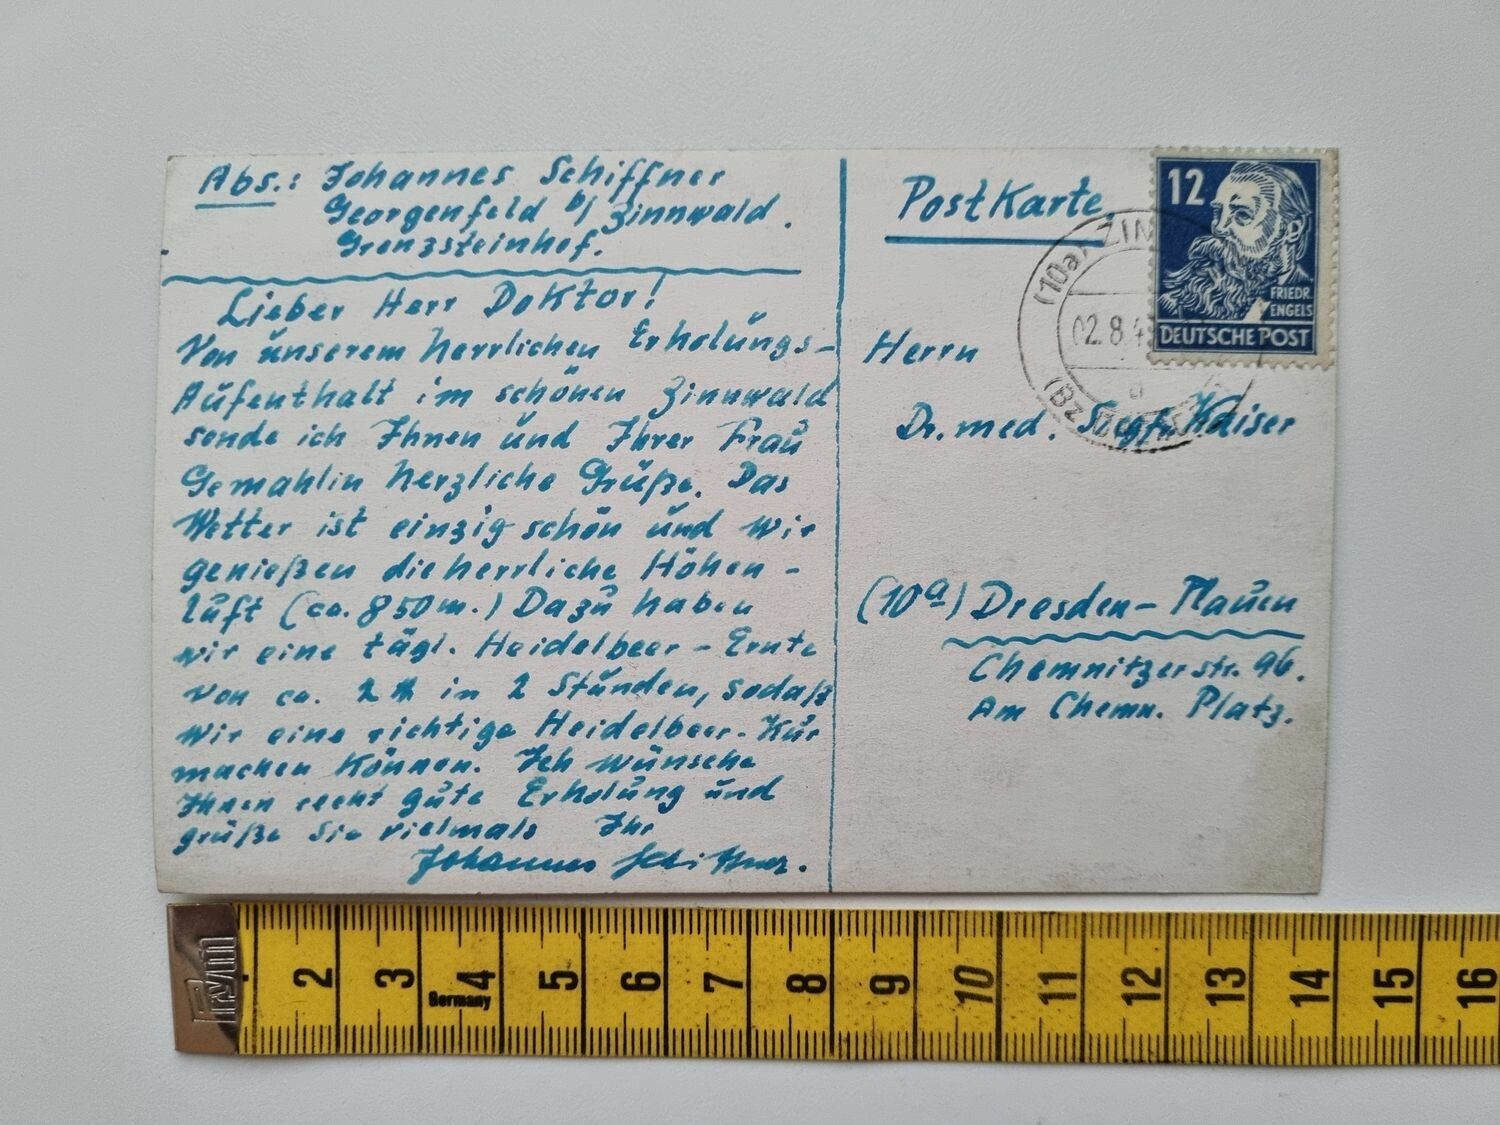 Abs.: Johannes Schiffner
Georgenfeld b/ Zinnwald.
Grenzsteinhof.
Lieber Herr Doktor!
Von unserem herrlichen Erholungs-
Aufenthalt im schönen Zinnwald
sende ich Ihnen und Ihrer Frau
Gemahlin herzliche Grüße. Das
Wetter ist einzig schön und wir
genießen die herrliche Höhen-
luft (ca. 850 m.) Dazu haben
wir eine tägl. Heidelbeer-Ernte
von ca. 2 in 2 Stunden, sodaß
wir eine richtige Heidelbeer-Kur
machen können. Ich wünsche
Ihnen recht gute Erholung und
grüße Sie vielmals Ihr
Johannes Schiffner.
PostKarte
(10a) ZIN
02.8.4
(Bz
12
FRIEDR.
ENGELS
DEUTSCHE POST
Herrn
Dr. med. Siegfr. Kaiser
(10a) Dresden-Plauen
Chemnitzerstr. 96.
Am Chemn. Platz.
Prym
Germany
2 3 4 5 6 7 8 9 10 11 12 13 14 15 16